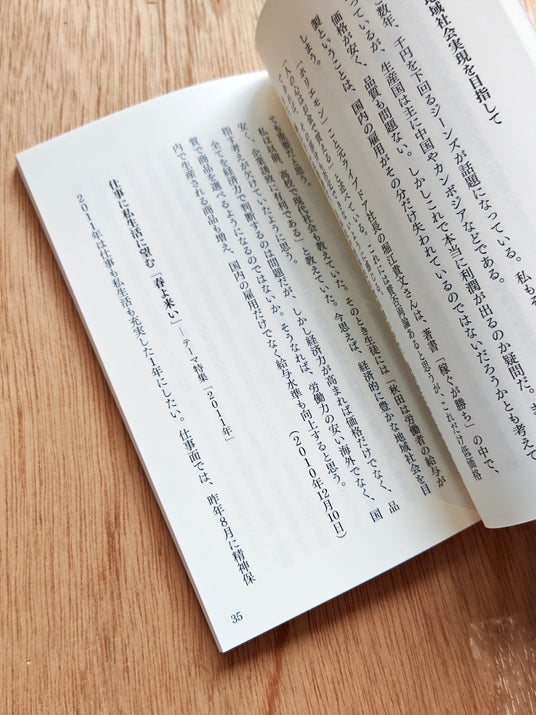 地域社会実現を目指して
数年、千円を下回るジーンズが話題になっている。私も
っているが、生産国は主に中国やカンボジアなどである。
価格が安く、品質も問題ない。しかしこれで本当に利潤が出るのか疑問だ。ま
製ということは、国内の雇用がその分だけ失われているのではないだろうかとも考えて
しまう。
「ホリエモン」こと元ライブドア社長の堀江貴文さんは、著書「稼ぐが勝ち」の中で、
「人の心はお金で買える」と述べている。これには賛否両論あると思うが、これだけ低価格
ても重要だと思う。
私は以前、高校で現代社会も教えていた。そのとき生徒には「秋田は労働者の給与が
安く、企業誘致に有利である」と教えていた。今思えば、経済的に豊かな地域社会を目
指す考えが欠けていたように思う。
全てを経済力で判断するのは問題だが、しかし経済力が高まれば価格だけでなく、品
質で商品を選べるようになるのではないか。そうなれば、労働力の安い海外でなく、国
内で生産される商品も増え、国内の雇用だけでなく給与水準も向上すると思う。
(2010年12月10日)
仕事に私生活に望む「春よ来い」―テーマ特集「2011年」
2011年は仕事も私生活も充実した1年にしたい。仕事面では、昨年8月に精神保
35